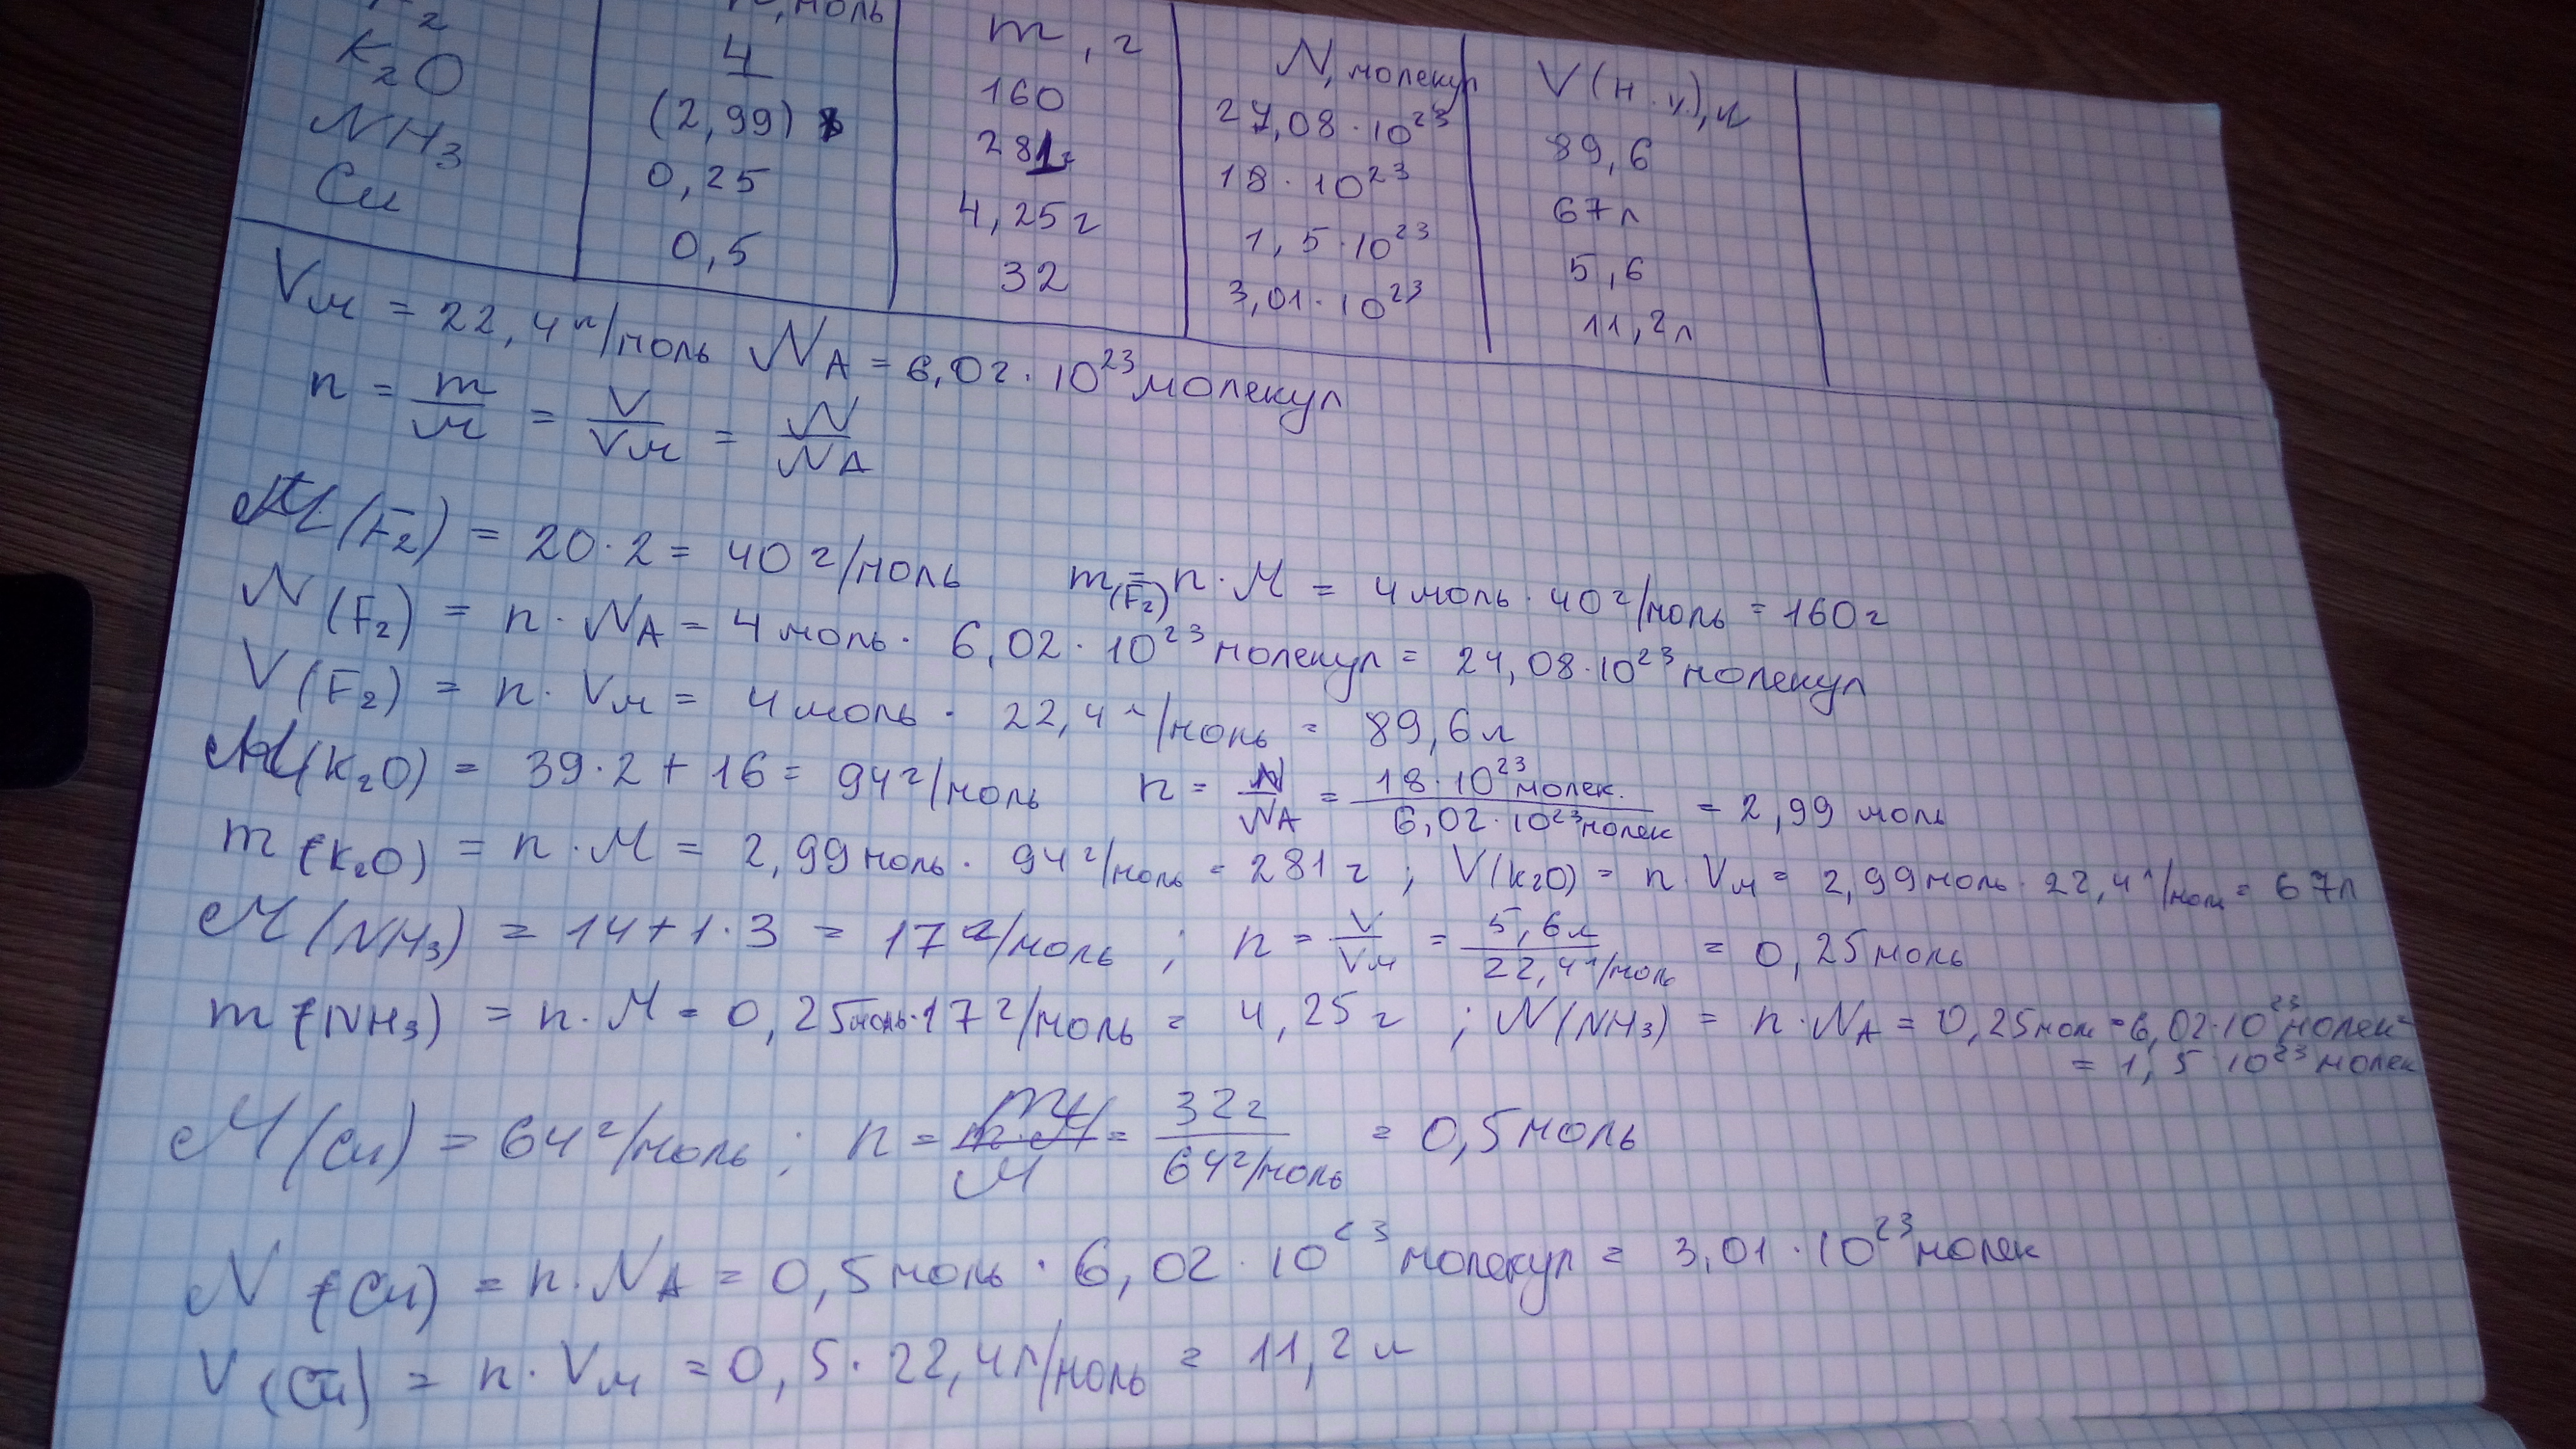 F₂ n, моль m, г N, молекул V(н.у.), л
K₂O 4 160 27,08·10²³ 89,6
NH₃ (2,99) 281г 18·10²³ 67л
Cu 0,25 4,25г 1,5·10²³ 5,6
0,5 32 3,01·10²³ 11,2л
Vм = 22,4 л/моль Nᴀ = 6,02·10²³ молекул
n = m/M = V/Vм = N/Nᴀ
M(F₂) = 20·2 = 40 г/моль m(F₂) = n·M = 4 моль·40 г/моль = 160 г
N(F₂) = n·Nᴀ = 4 моль·6,02·10²³ молекул = 24,08·10²³ молекул
V(F₂) = n·Vм = 4 моль·22,4 л/моль = 89,6 л
M(K₂O) = 39·2+16 = 94 г/моль n = N/Nᴀ = 18·10²³ молек./6,02·10²³ молек = 2,99 моль
m(K₂O) = n·M = 2,99 моль·94 г/моль = 281 г ; V(K₂O) = n·Vм = 2,99 моль·22,4 л/мол = 67 л
M(NH₃) = 14+1·3 = 17 г/моль ; n = V/Vм = 5,6 л/22,4 л/моль = 0,25 моль
m(NH₃) = n·M = 0,25 моль·17 г/моль = 4,25 г ; N(NH₃) = n·Nᴀ = 0,25 мол = 6,02·10²³ молек =
= 1,5·10²³ молек
M(Cu) = 64 г/моль ; n = m/M = 32 г/64 г/моль = 0,5 моль
N(Cu) = n·Nᴀ = 0,5 моль·6,02·10²³ молекул = 3,01·10²³ молек
V(Cu) = n·Vм = 0,5·22,4 л/моль = 11,2 л